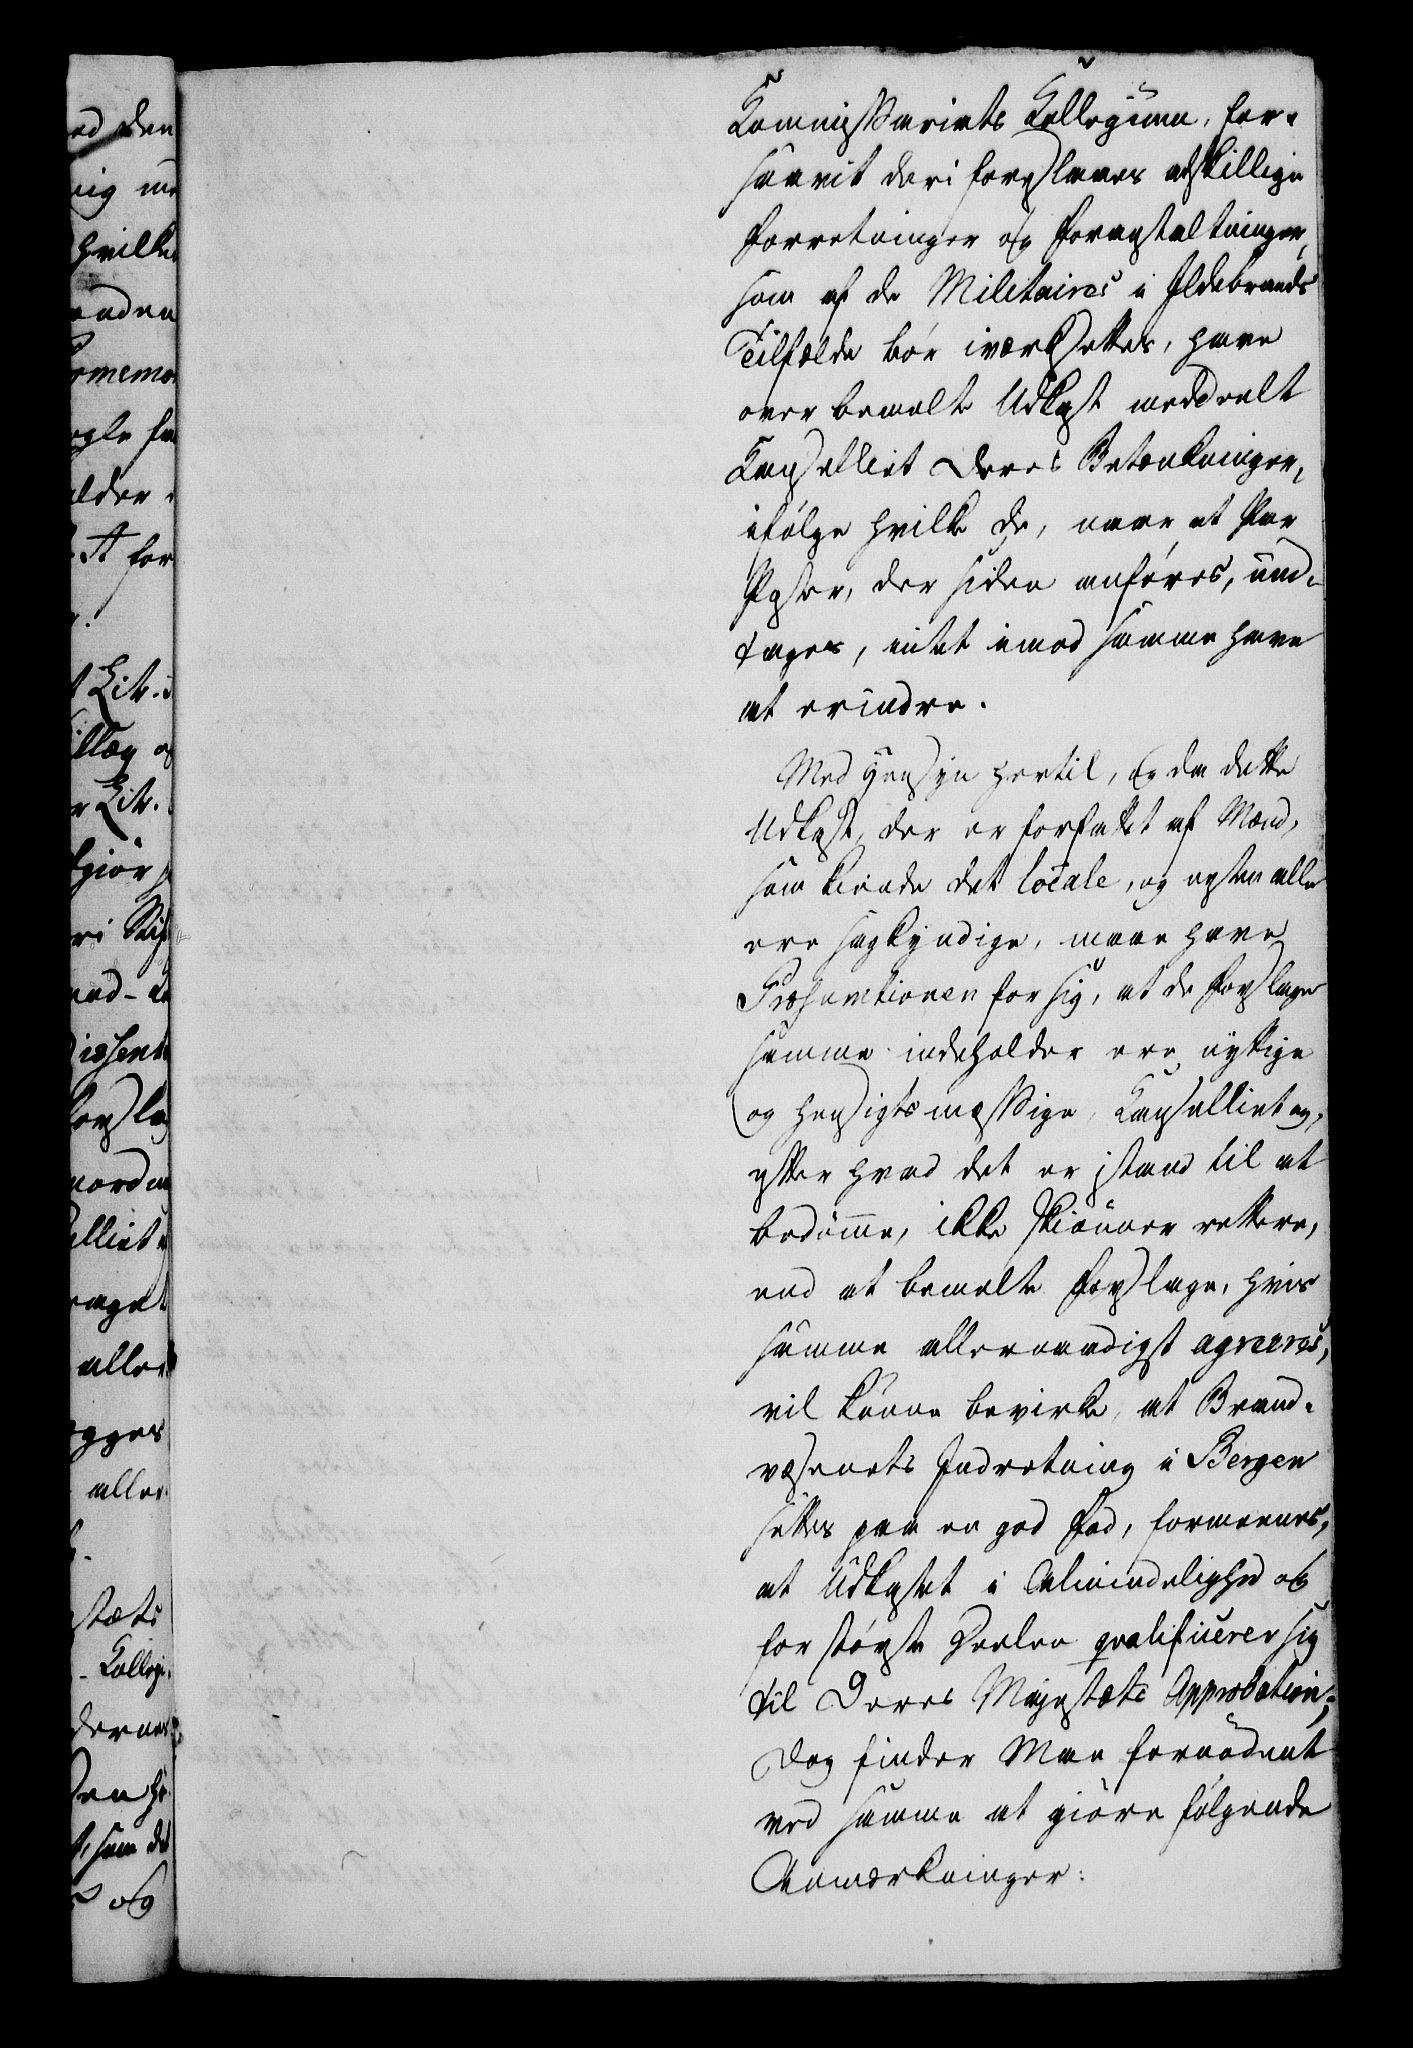 Kommissariats Kollegium, for-
saavit deri foreslaaes adskillige
Forretninger og Foranstaltninger,
som af de Militaires i Ildebrands
Tilfælde bør iværksættes, have
over bemelte Udkast meddeelt
Kanselliet deres Betænkninger,
ifølge hvilke de, naar et Par
Poster, der siden anføres, und-
tages, intet imod samme have
at erindre.
Med Hensyn hertil, og da dette
Udkast, der er forfattet af Mænd,
som kiende det locale, og næsten alle
ere sagkyndige, maae have
Præsumtionen for sig, at de Forslage
samme indeholder ere nyttige
og hensigtsmæssige, Kanselliet og,
efter hvad det er istand til at
bedømme, ikke skiønner rettere,
end at bemelte Forslage, hvis
samme allernaadigst agreeres,
vil kunne bevirke, at Brand-
væsenets Indretning i Bergen
sættes paa en god Fod, formeenes,
at Udkastet i Almindelighed og
for største Deelen qvalificerer sig
til Deres Majestæts Approbation;
dog finder Man fornødent
ved samme at giøre følgende
Anmærkninger: